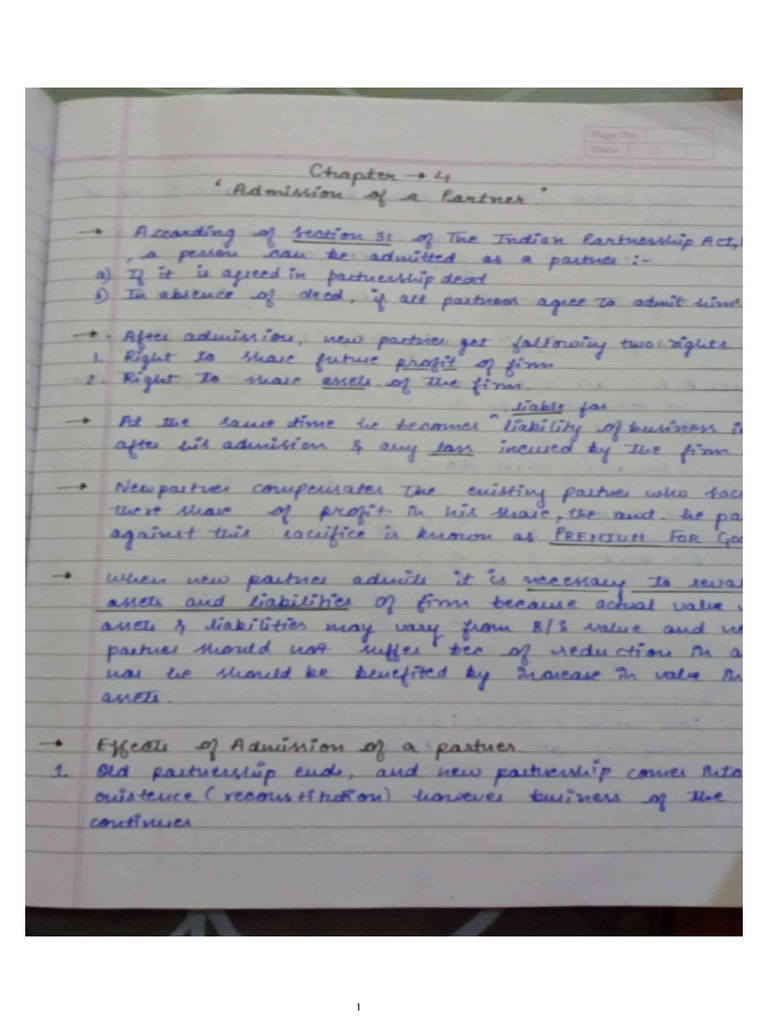 Page No.
Date
Chapter → 4
"Admission of a Partner"
→ According of Section 31 of The Indian Partnership Act,
, a person can be admitted as a partner :-
a) If it is agreed in partnership deed
b) In absence of deed, if all partners agree to admit him
→ After admission, new partner get following two rights
1. Right to share future profit of firm
2. Right to share assets of the firm.
liable for
→ At the same time he becomes ^ liability of business
after his admission & any loss incured by the firm
→ New partner compensates the existing partner who
there share of profit in his share, the amt. he
against this sacrifice is known as PREMIUM FOR
→ When new partner admits it is necessary to
assets and liabilities of firm because actual value
assets & liabilities may vary from B/S value and
partner should not suffer bec of reduction in
nor he should be benefited by increase in value in
assets.
→ Effects of Admission of a partner
1. Old partnership ends, and new partnership comes into
existence (reconstitution) however business of the
continues
1